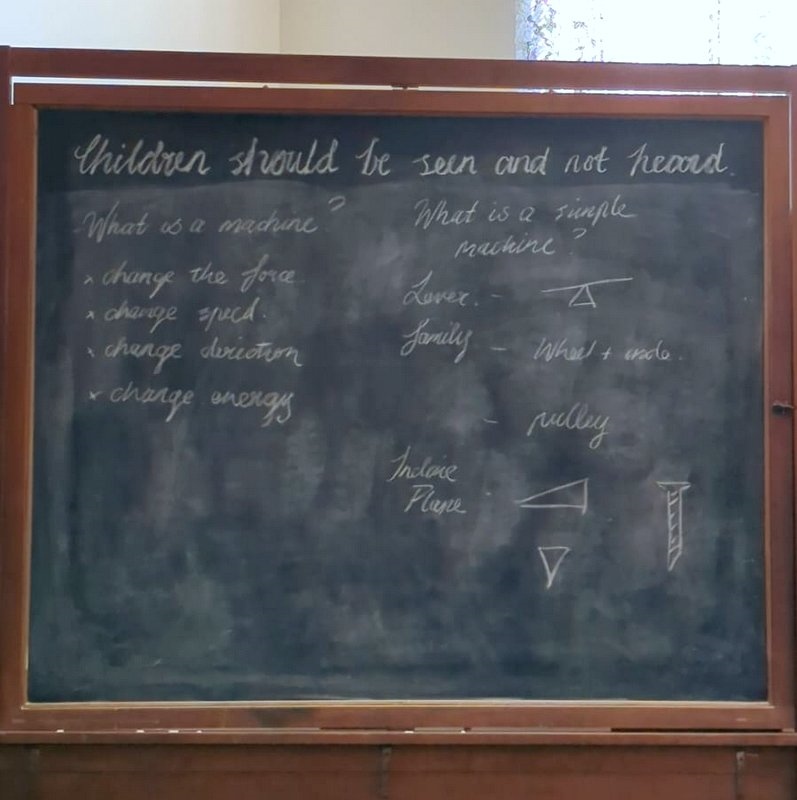 Children should be seen and not heard.
What is a machine?
× change the force
× change speed.
× change direction
× change energy
What is a simple
machine?
Lever. -
family - Wheel + axle.
- pulley
Incline
Plane -